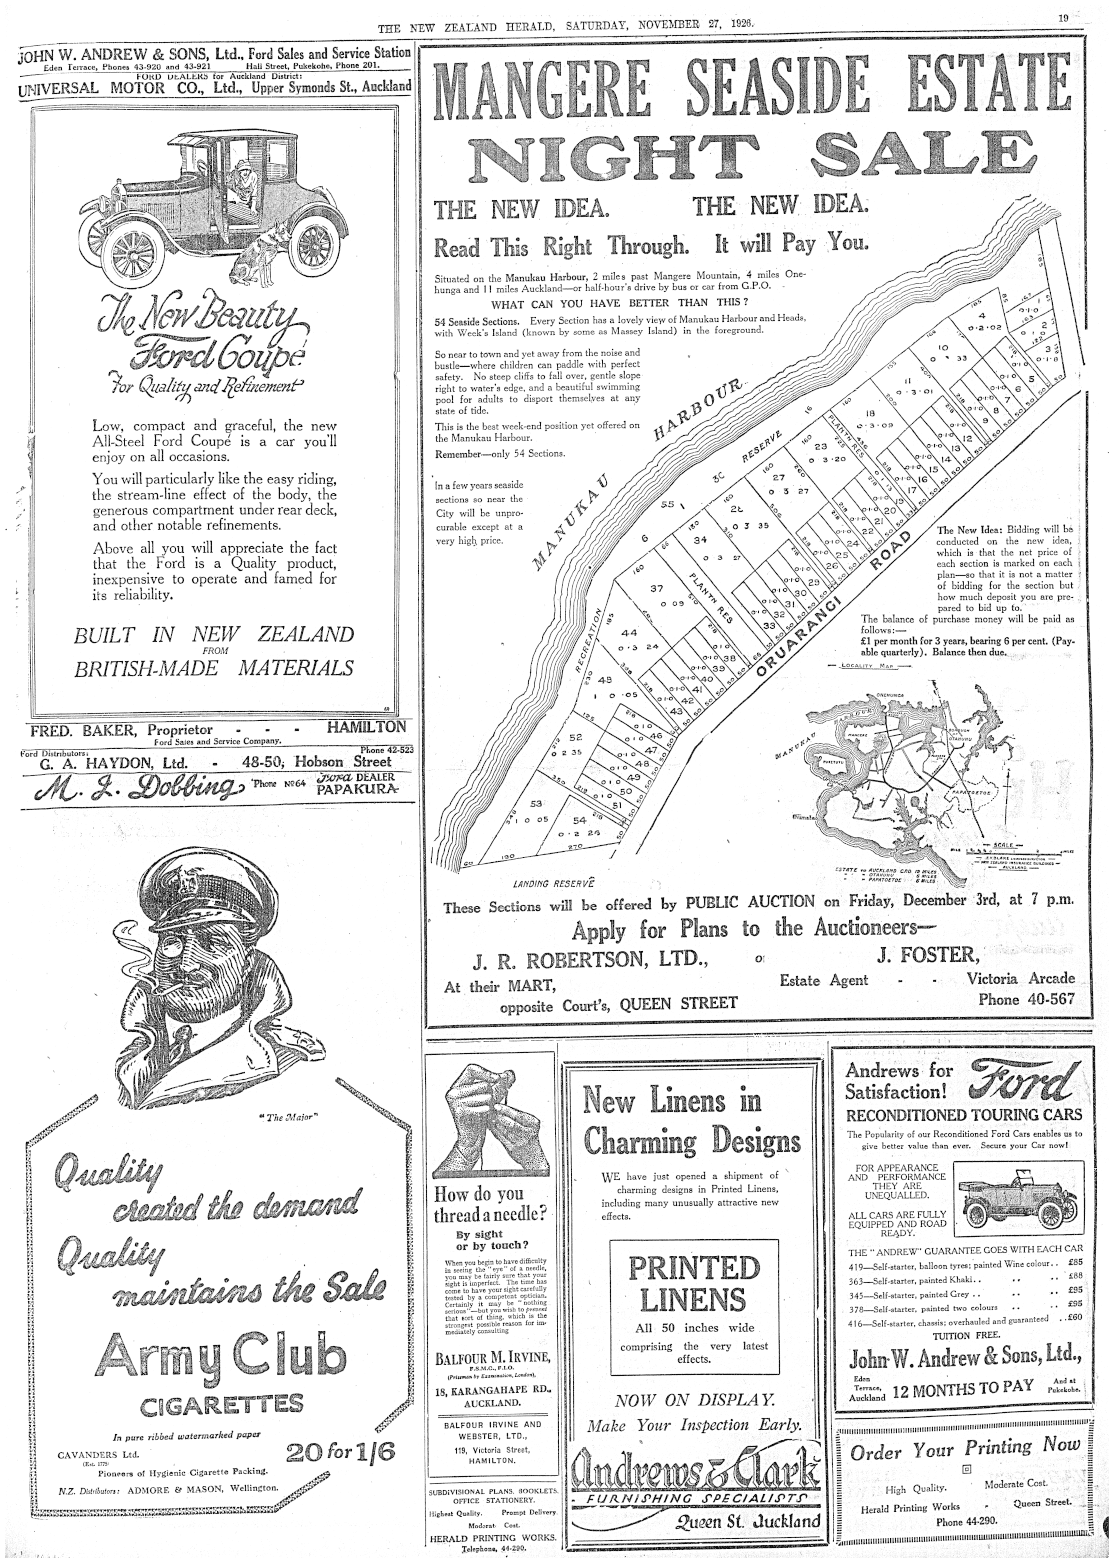 THE NEW ZEALAND HERALD, SATURDAY, NOVEMBER 27, 1926.
19
JOHN W. ANDREW & SONS, Ltd., Ford Sales and Service Station
Eden Terrace, Phones 43-920 and 43-921 Hall Street, Pukekohe, Phone 201.
FORD DEALERS for Auckland District:
UNIVERSAL MOTOR CO., Ltd., Upper Symonds St., Auckland
The New Beauty
Ford Coupé
For Quality and Refinement
Low, compact and graceful, the new
All-Steel Ford Coupé is a car you'll
enjoy on all occasions.
You will particularly like the easy riding,
the stream-line effect of the body, the
generous compartment under rear deck,
and other notable refinements.
Above all you will appreciate the fact
that the Ford is a Quality product,
inexpensive to operate and famed for
its reliability.
BUILT IN NEW ZEALAND
FROM
BRITISH-MADE MATERIALS
FRED. BAKER, Proprietor - - - HAMILTON
Ford Sales and Service Company.
Ford Distributors: Phone 42-523
G. A. HAYDON, Ltd. - 48-50, Hobson Street
M. J. Dobbing, 'Phone No 64 Ford DEALER
PAPAKURA
"The Major"
Quality
created the demand
Quality
maintains the Sale
Army Club
CIGARETTES
In pure ribbed watermarked paper
CAVANDERS Ltd. 20 for 1/6
(Est. 1775)
Pioneers of Hygienic Cigarette Packing.
N.Z. Distributors: ADMORE & MASON, Wellington.
MANGERE SEASIDE ESTATE
NIGHT SALE
THE NEW IDEA. THE NEW IDEA.
Read This Right Through. It will Pay You.
Situated on the Manukau Harbour, 2 miles past Mangere Mountain, 4 miles One-
hunga and 11 miles Auckland—or half-hour's drive by bus or car from G.P.O.
WHAT CAN YOU HAVE BETTER THAN THIS?
54 Seaside Sections. Every Section has a lovely view of Manukau Harbour and Heads,
with Week's Island (known by some as Massey Island) in the foreground.
So near to town and yet away from the noise and
bustle—where children can paddle with perfect
safety. No steep cliffs to fall over, gentle slope
right to water's edge, and a beautiful swimming
pool for adults to disport themselves at any
state of tide.
This is the best week-end position yet offered on
the Manukau Harbour.
Remember—only 54 Sections.
In a few years seaside
sections so near the
City will be unpro-
curable except at a
very high price.
MANUKAU HARBOUR
RECREATION RESERVE
PLANTN RES
PLANTN RES
ORUARANGI ROAD
LANDING RESERVE
The New Idea: Bidding will be
conducted on the new idea,
which is that the net price of
each section is marked on each
plan—so that it is not a matter
of bidding for the section but
how much deposit you are pre-
pared to bid up to.
The balance of purchase money will be paid as
follows:—
£1 per month for 3 years, bearing 6 per cent. (Pay-
able quarterly). Balance then due.
LOCALITY MAP
ONEHUNGA
MANUKAU
HARBOUR
MANGERE
PUKETUTU
PAPATOETOE
SCALE
ESTATE to AUCKLAND G.P.O 10 MILES
OTAHUHU 5 MILES
PAPATOETOE 6 MILES
These Sections will be offered by PUBLIC AUCTION on Friday, December 3rd, at 7 p.m.
Apply for Plans to the Auctioneers—
J. R. ROBERTSON, LTD., or J. FOSTER,
At their MART, Estate Agent - - Victoria Arcade
opposite Court's, QUEEN STREET Phone 40-567
How do you
thread a needle?
By sight
or by touch?
When you begin to have difficulty
in seeing the "eye" of a needle,
you may be fairly sure that your
sight is imperfect. The time has
come to have your sight carefully
tested by a competent optician.
Certainly it may be "nothing
serious"—but you wish to prevent
that sort of thing, which is the
strongest possible reason for im-
mediately consulting
BALFOUR M. IRVINE,
F.S.M.C., F.I.O.
(Prizeman by Examination, London),
18, KARANGAHAPE RD.,
AUCKLAND.
BALFOUR IRVINE AND
WEBSTER, LTD.,
119, Victoria Street,
HAMILTON.
SUBDIVISIONAL PLANS, BOOKLETS,
OFFICE STATIONERY.
Highest Quality. Prompt Delivery
Moderate Cost.
HERALD PRINTING WORKS.
Telephone, 44-290.
New Linens in
Charming Designs
WE have just opened a shipment of
charming designs in Printed Linens,
including many unusually attractive new
effects.
PRINTED
LINENS
All 50 inches wide
comprising the very latest
effects.
NOW ON DISPLAY.
Make Your Inspection Early.
Andrews & Clark
FURNISHING SPECIALISTS
Queen St. Auckland
Andrews for Ford
Satisfaction!
RECONDITIONED TOURING CARS
The Popularity of our Reconditioned Ford Cars enables us to
give better value than ever. Secure your Car now!
FOR APPEARANCE
AND PERFORMANCE
THEY ARE
UNEQUALLED.
ALL CARS ARE FULLY
EQUIPPED AND ROAD
READY.
THE "ANDREW" GUARANTEE GOES WITH EACH CAR
419—Self-starter, balloon tyres; painted Wine colour.. £85
363—Self-starter, painted Khaki.. .. .. £88
345—Self-starter, painted Grey .. .. .. £95
378—Self-starter, painted two colours .. .. £95
416—Self-starter, chassis; overhauled and guaranteed ..£60
TUITION FREE.
John W. Andrew & Sons, Ltd.,
Eden Terrace, Auckland 12 MONTHS TO PAY And at Pukekohe.
Order Your Printing Now
High Quality. Moderate Cost.
Herald Printing Works - Queen Street.
Phone 44-290.